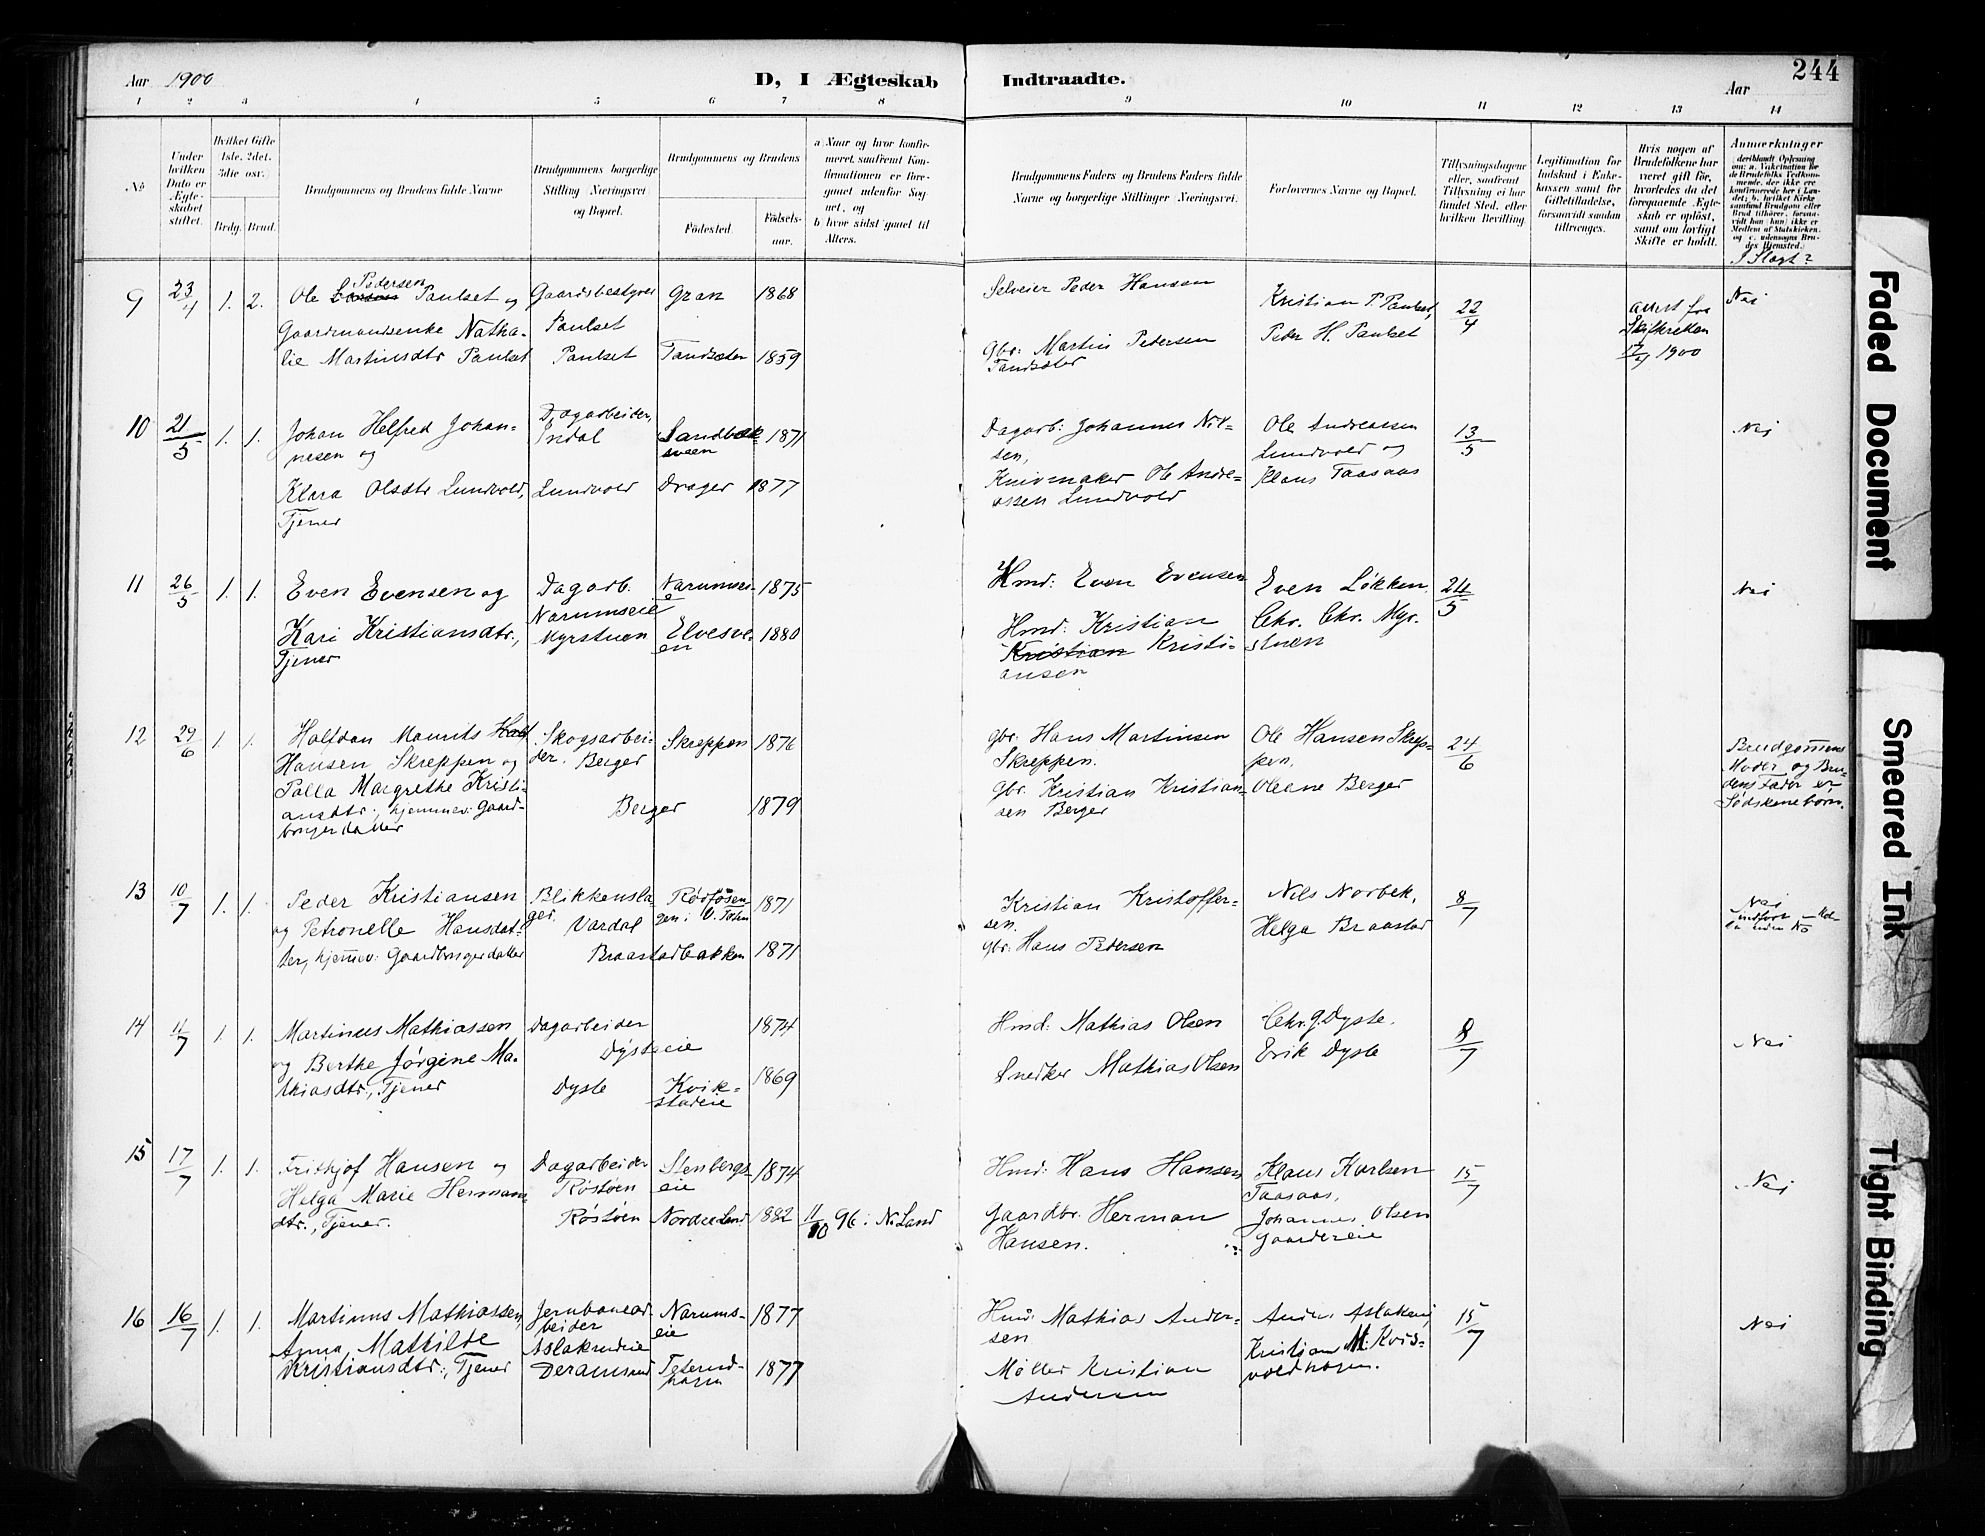 Aar 1900
D, I Ægteskab Indtraadte.
Aar
244
1 2 3 4 5 6 7 8 9 10 11 12 13 14
No
Under hvilken Dato er Ægteskabet stiftet.
Hvilket Gifte 1ste, 2det, 3die osv.)
Brdg. Brud.
Brudgommens og Brudens fulde Navne
Brudgommens borgerlige Stilling Næringsvei og Bopæl.
Brudgommens og Brudens
Fødested.
Fødselsaar.
a) Naar og hvor konfirmeret, saafremt Konfirmationen er foregaaet udenfor Sognet, og
b) hvor sidst gaaet til Alters.
Brudgommens Faders og Brudens Faders fulde Navne og borgerlige Stillinger Næringsvei.
Forlovernes Navne og Bopæl.
Tillysningsdagene eller, saafremt Tillysning ei har fundet Sted, efter hvilken Bevilling
Legitimation for Indskud i Enkekassen samt for Giftetilladelse, forsaavidt saadan tiltrænges.
Hvis nogen af Brudefolkene har været gift før, hvorledes da det foregaaende Ægteskab er opløst, samt om lovligt Skifte er holdt.
Anmærkninger
I Slægt?
9 23/4 1. 2.
Ole Pedersen Paulset og
Gaardmandsenke Natha-
lie Martinsdtr Paulset
Gaardsbestyrer
Paulset
Paulset
Gran 1868
Tandsæter 1859
Selveier Peder Hansen
Gbr: Martin Pedersen
Tandsæter
Kristian P. Paulset,
Peder H. Paulset
22/4
attest fra
Skifteretten
17/4 1900
Nei
10 21/5 1. 1.
Johan Helfred Johan-
nesen og
Klara Olsdtr Lundvold,
Tjener
Dagarbeider,
Indal
Lundvold
Sandbæk-
sveen 1871
Drager 1877
Dagarb: Johannes Nil-
sen,
Knivmaker Ole Andre-
assen Lundvold
Ole Andreasen
Lundvold og
Klaus Taasaas
13/5
Nei
11 26/5 1. 1.
Even Evensen og
Kari Kristiansdtr.,
Tjener
Dagarb.
Narumseie
Myrstuen
Narumsei-
e 1875
Elvesve-
en 1880
Hmd: Even Evensen
Hmd: Kristian
Kristian Kristi-
ansen
Even Løkken
Chr. Chr. Myr-
stuen
24/5
Nei
12 29/6 1. 1.
Halfdan Maurits Half
Hansen Skreppen og
Palla Margrethe Kristi-
ansdtr; hjemmev: Gaard-
brugerdatter
Skogsarbei-
der. Berger
Berger
Skreppen 1876
1879
Gbr: Hans Martinsen
Skreppen.
Gbr. Kristian Kristian-
sen Berger
Ole Hansen Skrep-
pen,
Oleane Berger
24/6
Brudgommens
Moder og Bru-
dens Fader er
Sødskenebørn.
13 10/7 1. 1.
Peder Kristiansen
og Petronelle Hansdat-
ter, hjemmev: Gaardbrugerdatter
Blikkensla-
ger. Vardal
Braastadbakken
1871
1871
Kristian Kristoffer-
sen.
Gbr: Hans Pedersen
Nils Norbek,
Helga Braastad
8/7
Nei
14 11/7 1. 1.
Martinus Mathiassen
og Berthe Jørgine Ma-
thiasdtr., Tjener
Dagarbeider
Dysteeie
Dyste
1874
Kvik-
stadeie 1869
Hmd: Mathias Olsen
Snedker Mathias Olsen
Chr. G. Dyste.
Erik Dyste
8/7
Nei
15 17/7 1. 1.
Frithjof Hansen og
Helga Marie Herman-
dtr., Tjener.
Dagarbeider
Røstøen
Røstøen
Stenbergs-
eie 1874
Nordre Land 1882
11/10 96 i N. Land
Hmd: Hans Hansen
Gaardbr. Herman
Hansen.
Klaus Karlsen
Taasaas,
Johannes Olsen
Gaardereie
15/7
Nei
16 16/7 1. 1.
Martinus Mathiassen,
Anna Mathilde
Kristiansdtr:, Tjener
Jernbanear-
beider
Aslakrudeie
Deramsrud
Narums-
eie 1877
1877
Hmd: Mathias Ander-
sen
Møller Kristian
Andersen
Kristian M. Kors-
voldhagen.
15/7
Nei
Faded Document
Smeared Ink
Tight Binding